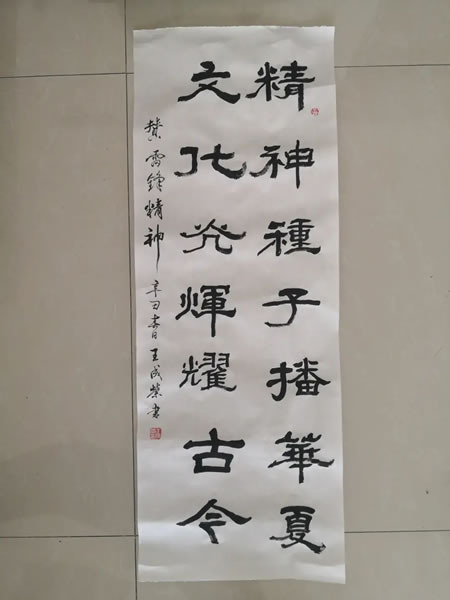 精神種子播華夏
文化光輝耀古今
赞雷锋精神 辛丑春日王成荣书